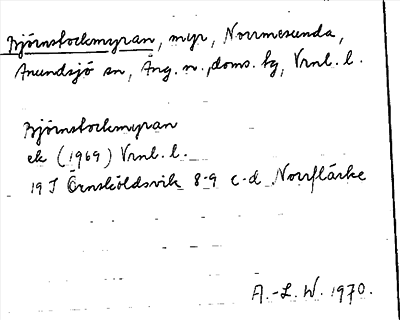 Björnstockmyran, myr, Norrmesunda,
Anundsjö sn, Ång. n., doms. bg, Vrnl. l.
Björnstockmyran
ek (1969) Vrnl. l.
19 J Örnsköldsvik 8-9 c-d Norrflärke
A.-L. W. 1970.